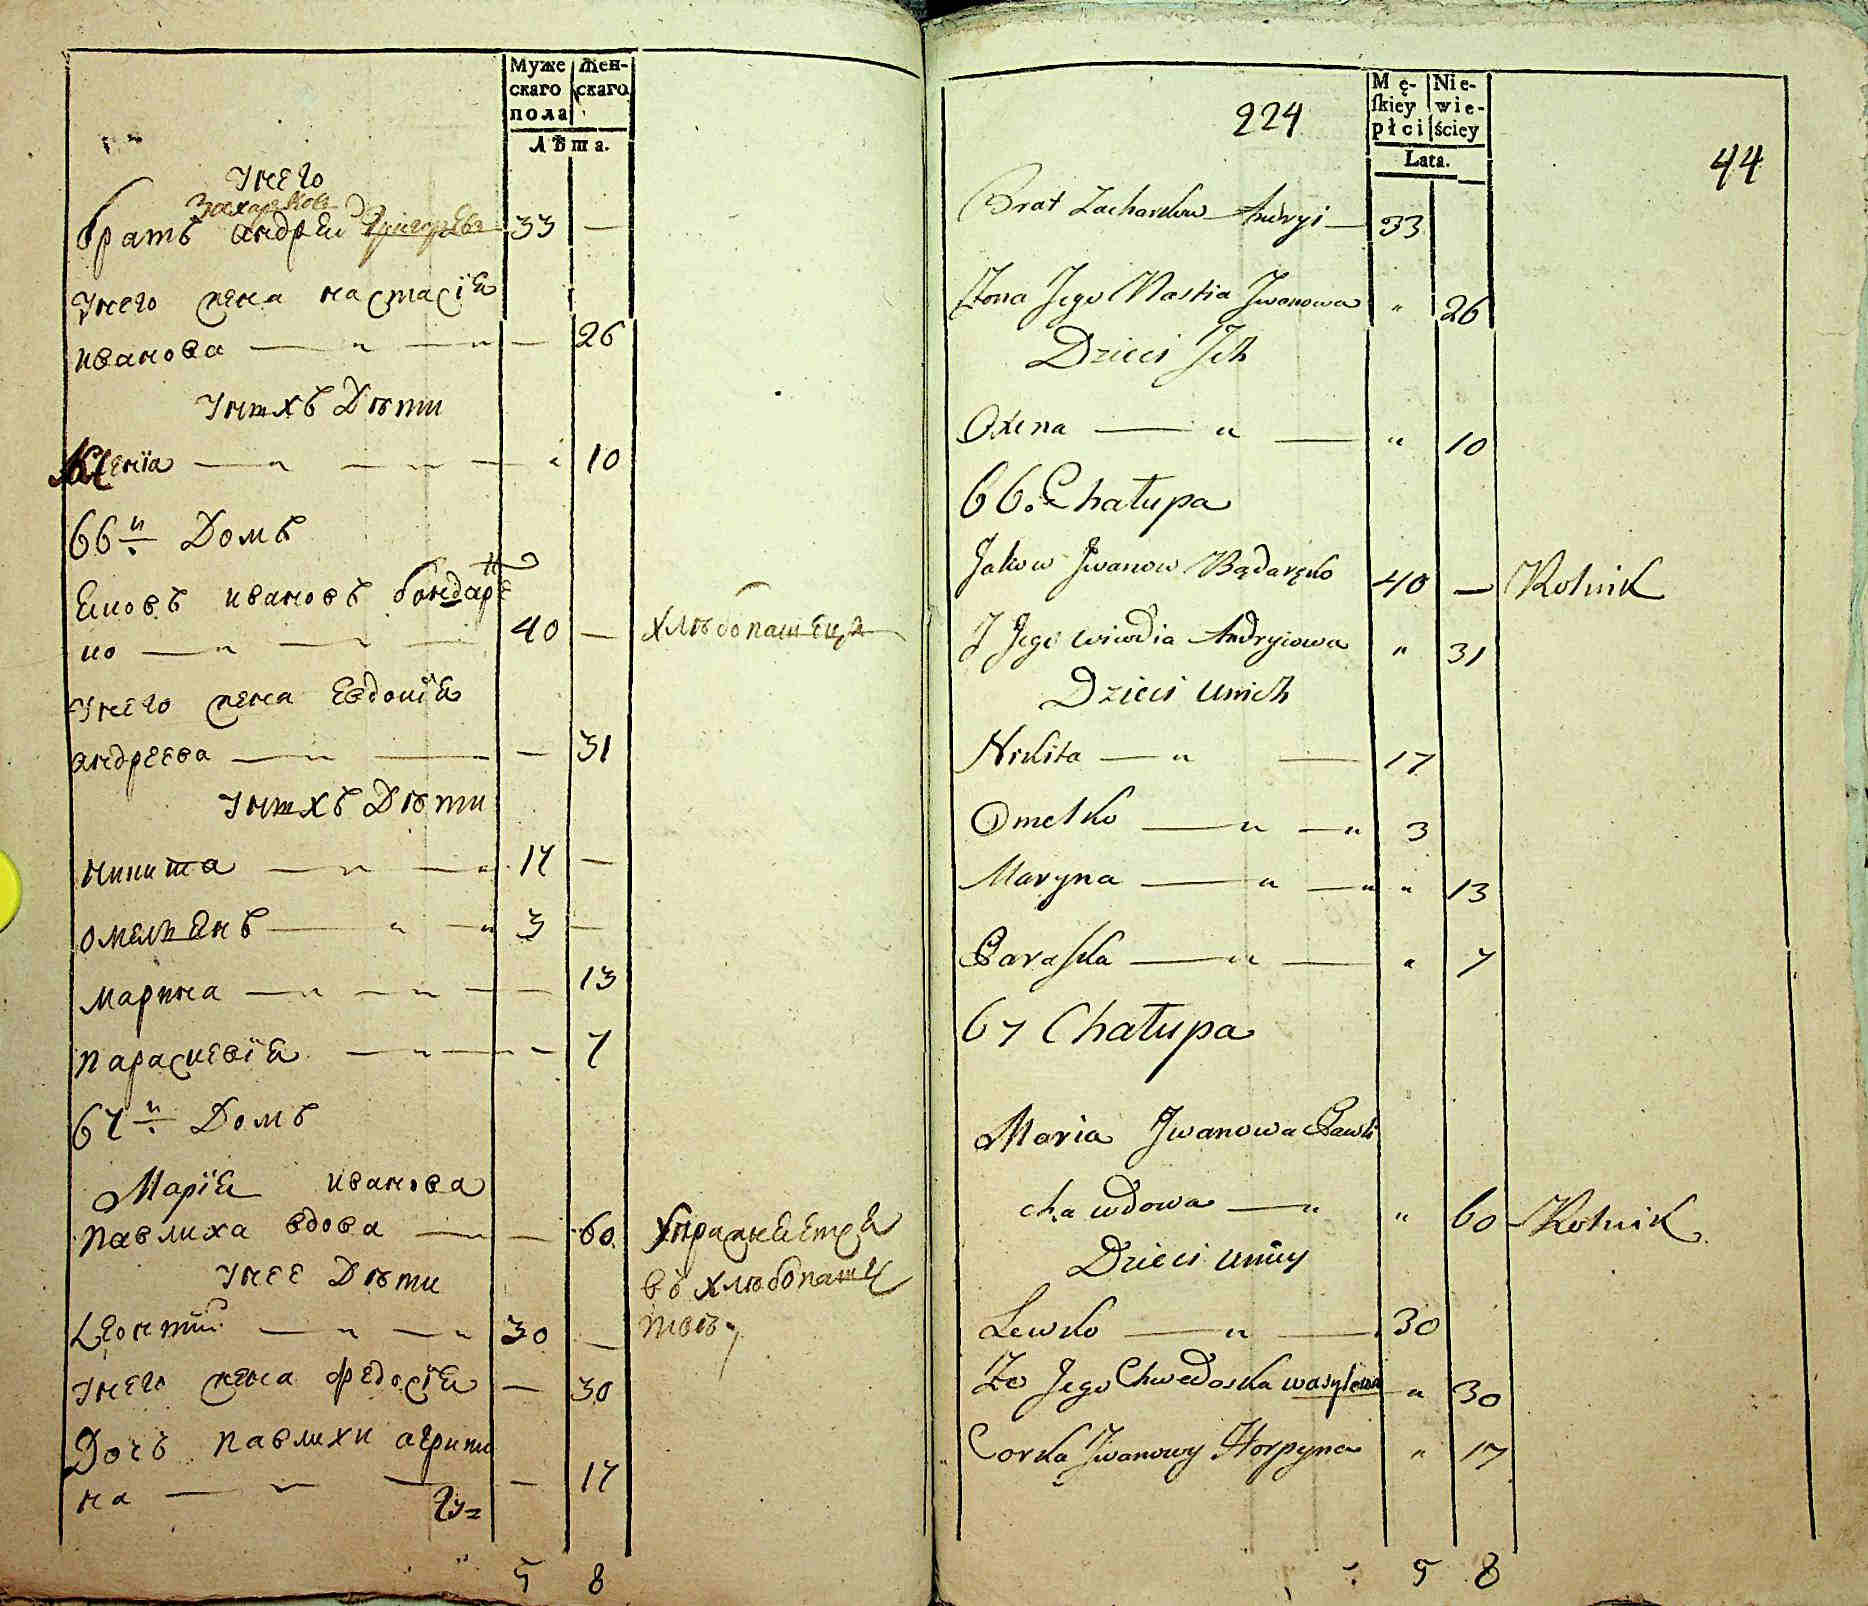 Муже
скаго
пола
Жен-
скаго
Лѣта.
Унего
Захарковъ
братъ андрей Григорьевъ 33 —
Унего жена настасїя
иванова — „ — „ — 26
Унихъ Дѣти
Ксенїа — „ — „ — „ 10
66й Домъ
Яковъ ивановъ бондарен
ко — „ — „ — 40 — хлѣбопашецъ
Унего жена Евдокїя
андреева — „ — — 31
Унихъ Дѣти
никита — „ — „ 17 —
омельянъ — „ — „ 3 —
марина — „ — „ — — 13
параскевїя — „ — — 7
67й Домъ
Марїя иванова
павлиха вдова — „ — 60 упражняется
Унее Дѣти
въ хлѣбопаше
Леонтїй — „ — „ 30 — ствѣ
Унего жена федосїя — 30
Дочь павлихи агрипи
на — „ — — 17
5 8
224
44
Mę-
ſkiey
płci
Nie-
wie-
ściey
Lata.
Brat Zacharków Andryi — 33
Żona Jego Nastia Jwanowa „ 26
Dzieci Jch
Oxena — „ — „ 10
66. Chałupa
Jakow Jwanow Bądaręko 40 — Rolnik
Ż Jego Wiwdia Andryiowa „ 31
Dzieci Unich
Nikita — „ — 17
Omelko — „ — „ 3
Maryna — „ — „ „ 13
Paraska — „ — „ 7
67 Chałupa
Maria Jwanowa Pawli
cha wdowa — „ „ 60 Rolnik
Dzieci Uniey
Lewko — „ — 30
Żo Jego Chwedoska wasylowa „ 30
Corka Jwanowy Horpyna „ 17
5 8